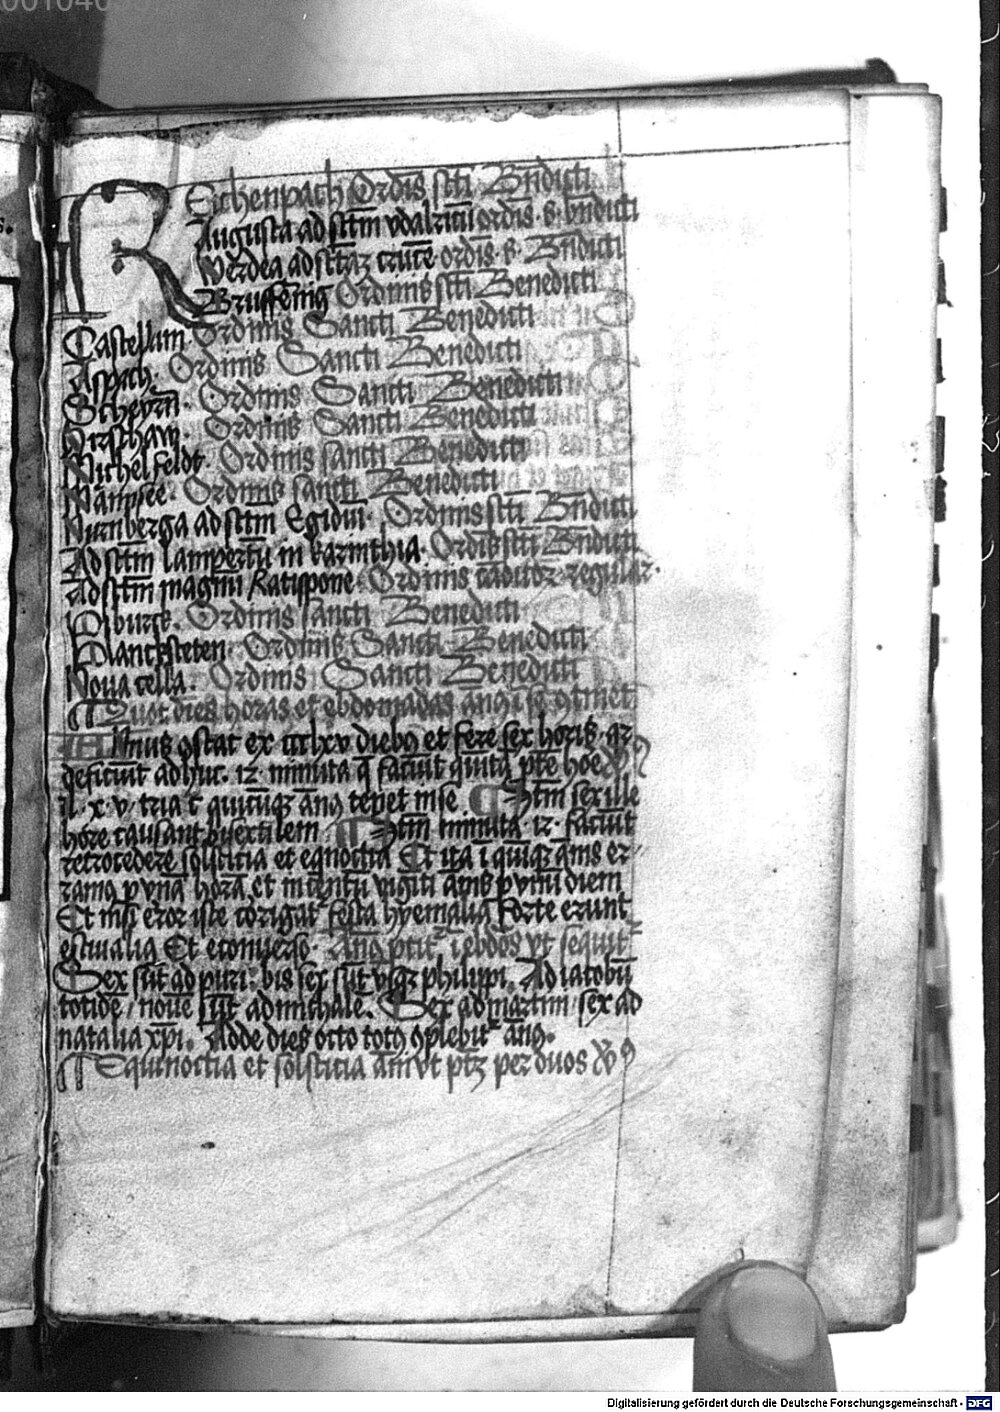 REichenpach Ordīs scti Bndicti
Augusta ad sctm vdalricū ordis · s · bndicti
Werdea ad sctaz crucē ordis · s · Bndicti
Bruffenig Ordinis scti Benedicti
Castellum Ordinis Sancti Benedicti
Aspach · Ordinis Sancti Benedicti
Scheyrn · Ordinis Sancti Benedicti
Hirschaw · Ordinis Sancti Benedicti
Michelfeldt · Ordinis sancti Benedicti
Mannsee · Ordinis sancti Benedicti
Nurnberga ad sctm Egidiū · Ordinis scti Bndicti
Ad sctm lampertū in karinthia · Ordis scti Bndicti
Ad sctm magnū Ratispone · Ordinis cādicor regular ·
Biburck · Ordinis sancti Benedicti
Plancksteten · Ordinis Sancti Benedicti
Noua cella · Ordinis Sancti Benedicti
Quot dies horas et ebdomadas ānq i se gtinet
Annus gstat ex ccclxv diebꝯ et fere sex horis · qr
deficiūt adhuc · 12 · minuta q faciūt quitā ptē hore
tenet hore causant bisextilem · minuta · 12 · faciūt
retrocedere solsticia et eqnoctia Et ita ī quiqz ānis er-
ramꝯ p vnā horā et in centū viginti ānis p vnū diem
Et nisi eror iste corigat festa hyemalia forte erunt
estiualia Et econuerso · Anꝯ ptit ī ebdos vt sequit
Sex sūt ad puri · bis sex sūt vsqz philippi · Ad iacobū
totidē / noue sūt ad michale · Sex ad martin / sex ad
natalia xpi · Adde dies octo totꝯ gplebit anꝯ ·
Equinoctia et solsticia āni vt ptz per duos